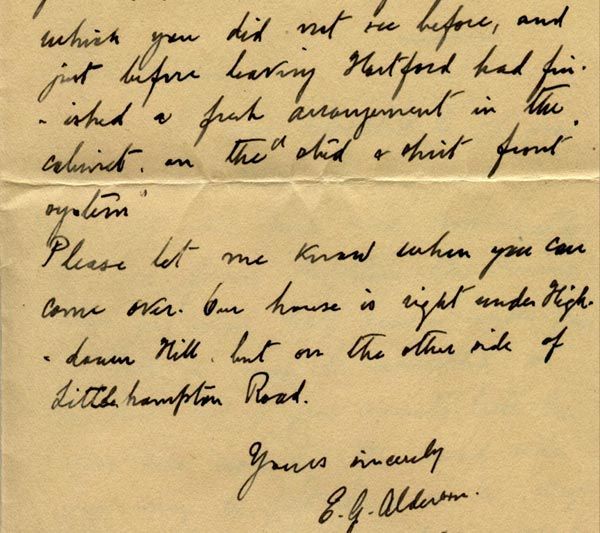 which you did not see before, and
just before leaving Hertford had fin-
-ished a fresh arrangement in the
cabinet. on the "stud & shirt front
system"
Please let me know when you can
come over. Our house is right under High-
-down Hill. but on the other side of
Littlehampton Road.
Yours sincerely
E. G. Alderson.